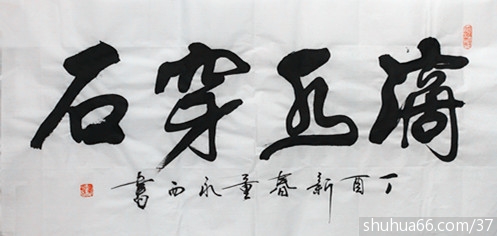 滴水穿石
丁酉新春董永西書
shuhua66.com/37